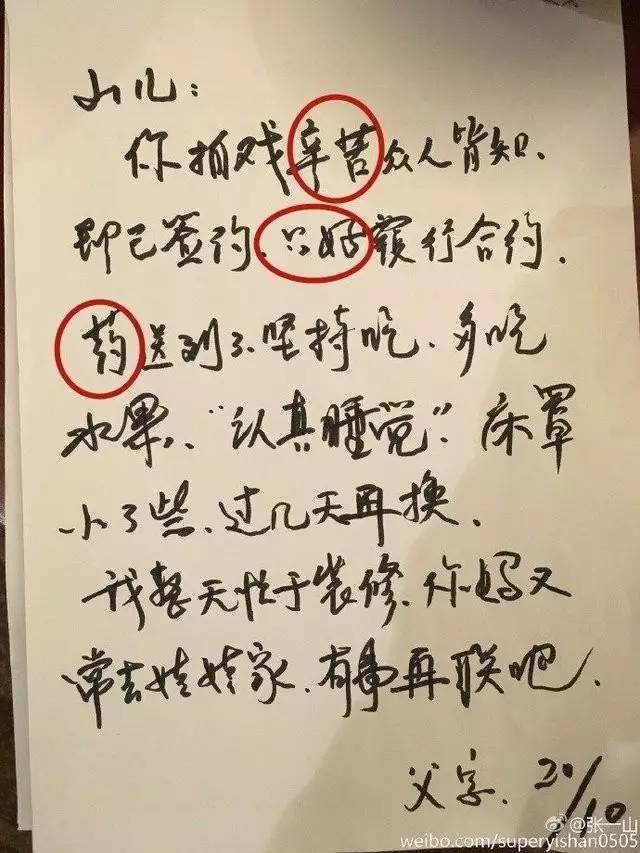 山儿：
你拍戏辛苦众人皆知、
即已签约、只好履行合约.
药送到了、坚持吃、多吃
水果、“认真睡觉”.床罩
小了些、过几天再换.
我整天忙于装修、你妈又
常去娃娃家、有事再联吧.
父字.20/10
@张一山
weibo.com/superyishan0505